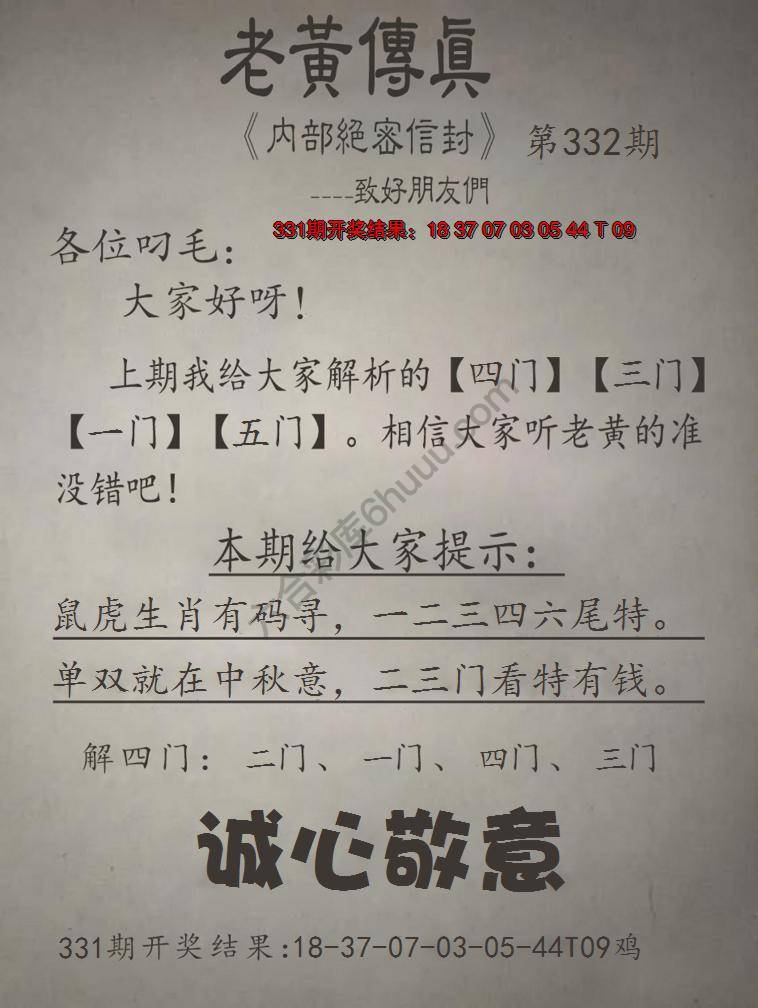 老黃傳眞
《内部絕密信封》 第332期
----致好朋友們
331期开奖结果：18 37 07 03 05 44 T 09
各位叼毛：
大家好呀！
上期我给大家解析的【四门】【三门】
【一门】【五门】。相信大家听老黄的准
没错吧！
本期给大家提示：
鼠虎生肖有码寻，一二三四六尾特。
单双就在中秋意，二三门看特有钱。
解四门： 二门、 一门、 四门、 三门
诚心敬意
331期开奖结果:18-37-07-03-05-44T09鸡
六合彩库6huuu.com